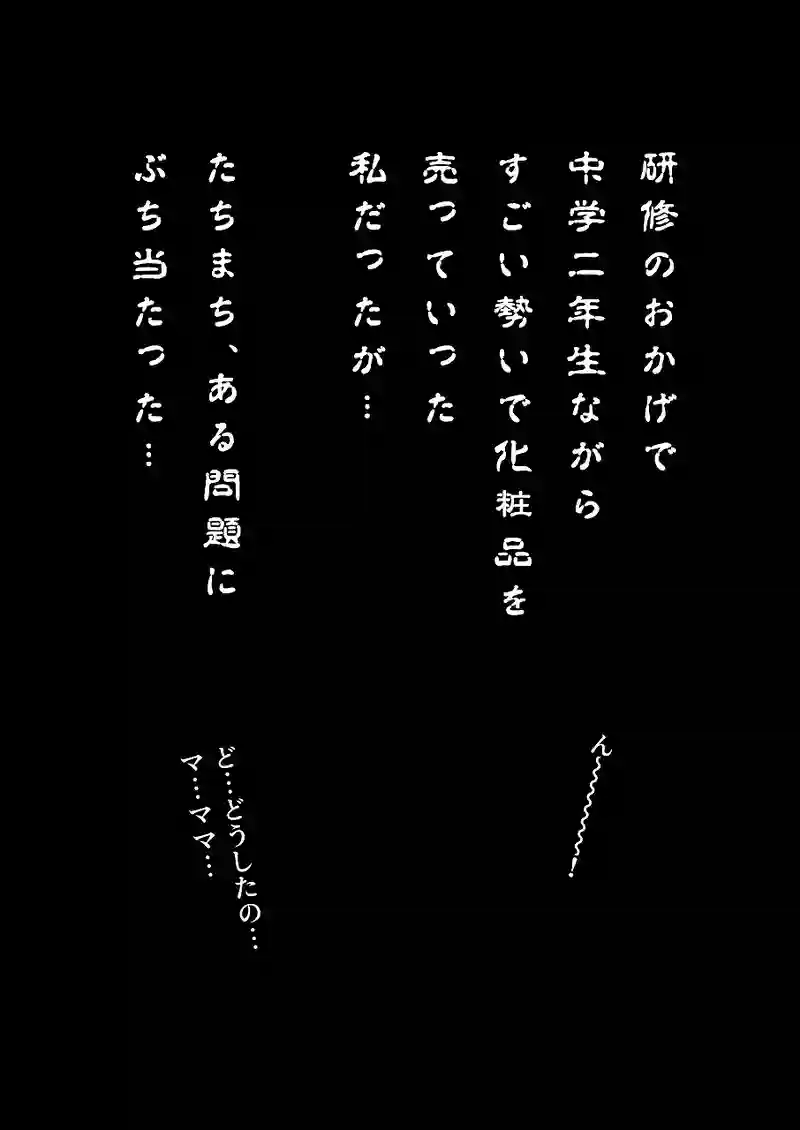 研修のおかげで
中学二年生ながら
すごい勢いで化粧品を
売っていった
私だったが…
たちまち、ある問題に
ぶち当たった…
ん~~~~~~~!
ど…どうしたの…
マ…ママ…